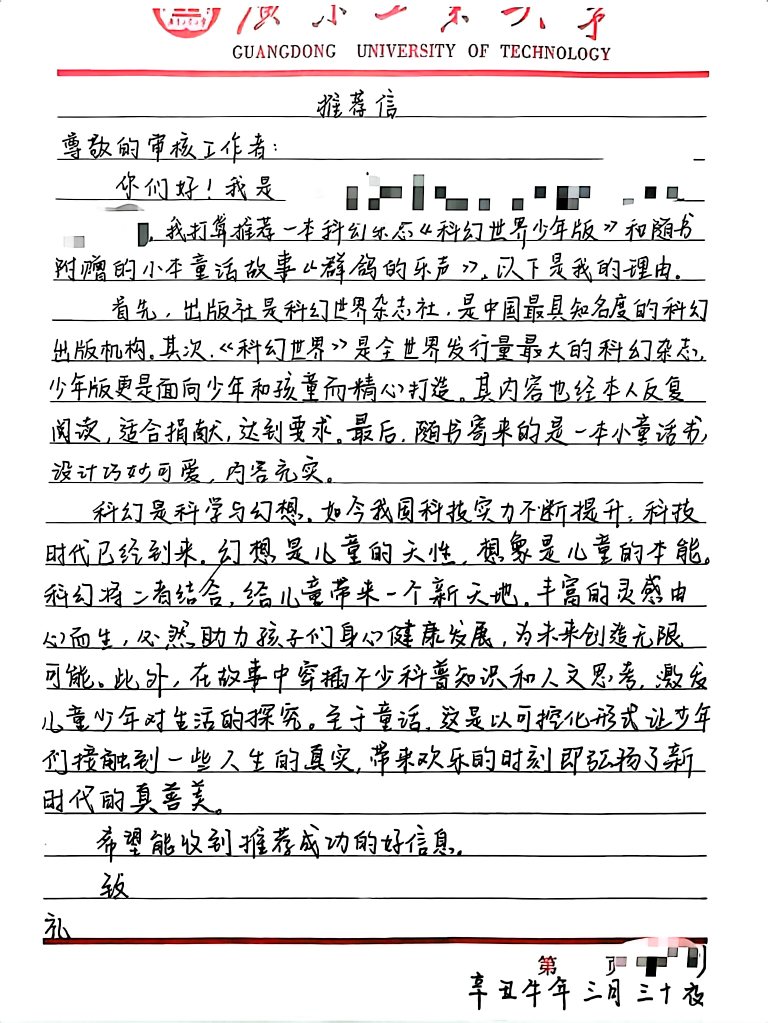 广东工业大学
GUANGDONG UNIVERSITY OF TECHNOLOGY
推荐信
尊敬的审核工作者:
你们好!我是
,我打算推荐一本科幻杂志《科幻世界少年版》和随书
附赠的小本童话故事《群鸽的乐声》,以下是我的理由。
首先,出版社是科幻世界杂志社,是中国最具知名度的科幻
出版机构。其次,《科幻世界》是全世界发行量最大的科幻杂志,
少年版更是面向少年和孩童而精心打造。其内容也经本人反复
阅读,适合捐献,达到要求。最后,随书寄来的是一本小童话书,
设计巧妙可爱,内容充实。
科幻是科学与幻想。如今我国科技实力不断提升,科技
时代已经到来。幻想是儿童的天性,想象是儿童的本能。
科幻将二者结合,给儿童带来一个新天地。丰富的灵感由
心而生,必然助力孩子们身心健康发展,为未来创造无限
可能。此外,在故事中穿插不少科普知识和人文思考,激发
儿童少年对生活的探究。至于童话,这是以可控化形式让少年
们接触到一些人生的真实,带来欢乐的时刻即弘扬了新
时代的真善美。
希望能收到推荐成功的好信息。
致
礼
第 页
辛丑牛年三月三十夜